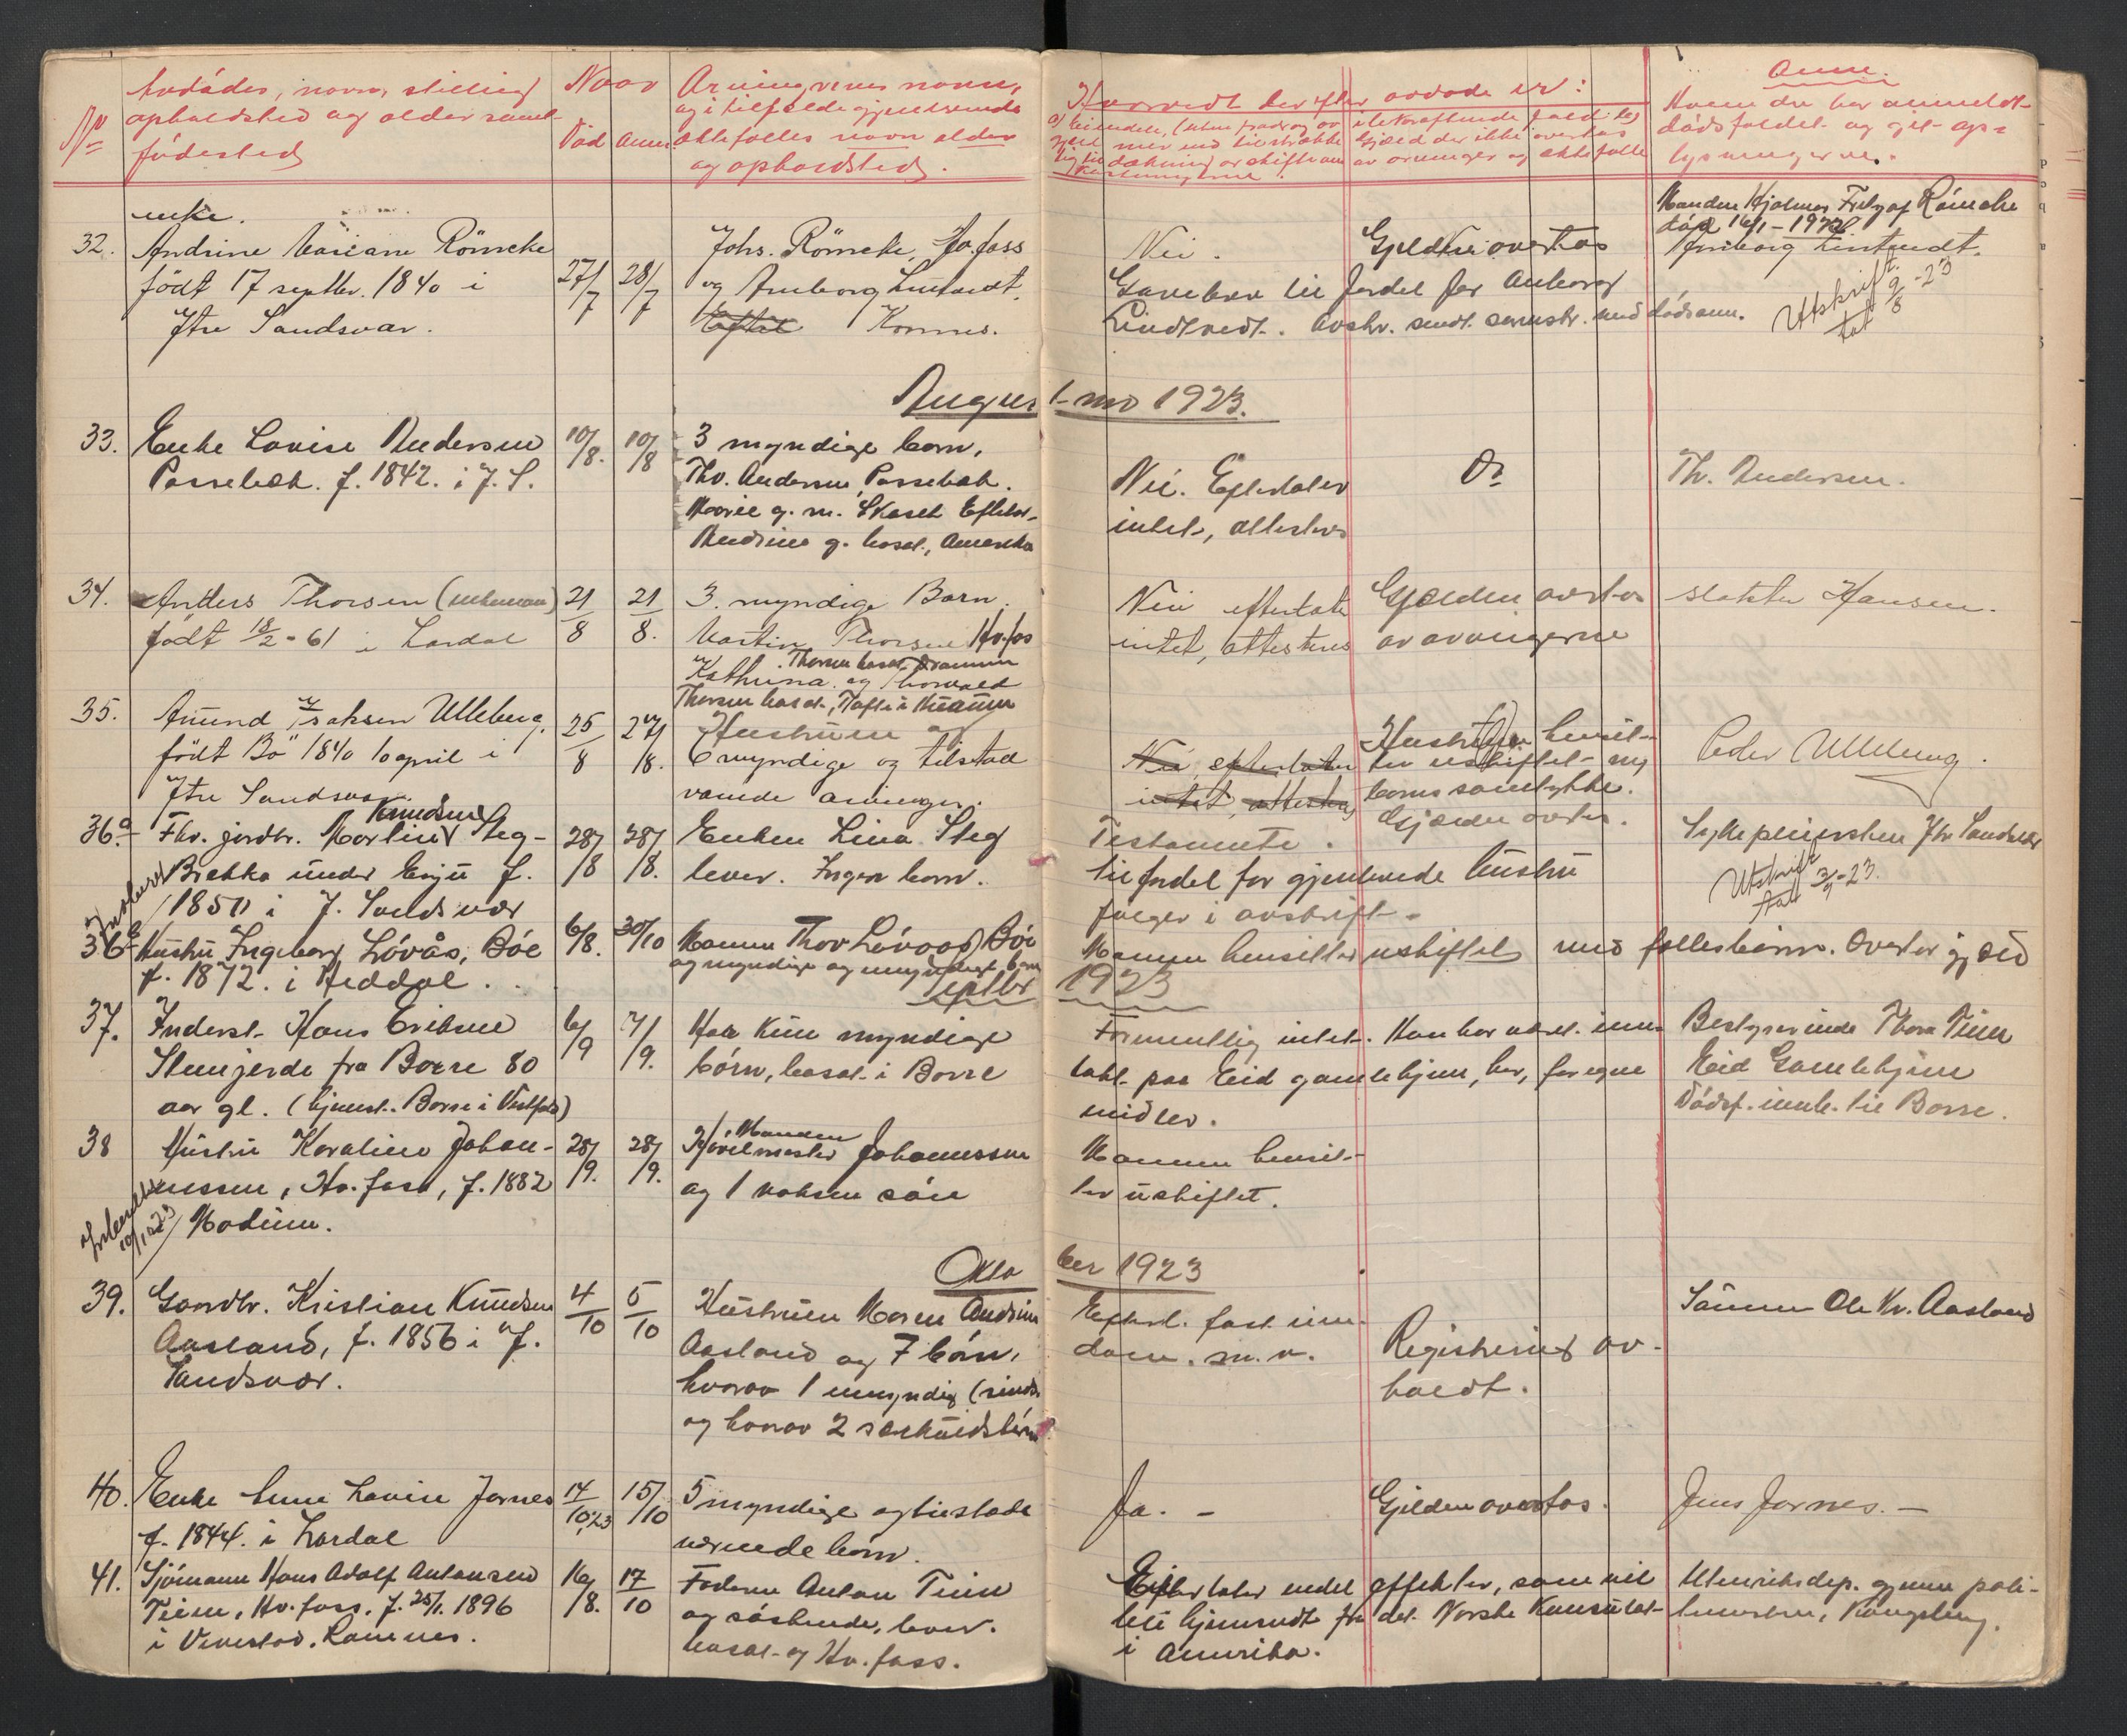 No
Avdødes, navn, stilling
opholdsted og alder samt
fødested
Naar
Død
Anm
Arvingernes navn,
og i tilfælde gjenlevende
ektefælles navn alder
og opholdsted.
Hvorvidt der efter avdøde er:
Anm.
Hvem der har anmeldt
dødsfaldet og git op-
lysningerne.
enke.
32. Andrine Mariane Römcke
født 17 septbr. 1840 i
Ytre Sandsvær.
27/7
28/7
Johs. Römcke, Ho.foss
og Amborg Lindtvedt,
Eftal Komnes.
Nei.
Gavebrev til fordel for Amborg
Lindtvedt. Avskr. sendt sammen med dødsanm.
Gjelden overtas
Manden Hjalmar Römcke
død 16/1-1922
Amborg Lindtvedt.
Utskrift
tat 9/8-23
August md 1923.
33. Enke Lovise Andersen
Passebæk. f. 1842. i Y. S.
10/8.
10/8
3 myndige barn,
Tho. Andersen, Passebæk.
Marie g. m. Skaset Efteløt
Andrine g. bosat, Amerika
Nei. Efterlater
intet, attesteres
Do
Th. Andersen.
34. Anders Thorsen (enkeman)
født 18/2-61 i Lardal
21/8
21/8.
3. myndige Barn.
Martin Thorsen Hv.fos
Thorsen bosat Drammen
Kathrina og Thorvald
Thorsen bosat,
Nei efterlater
intet, attesteres
Gjælden overtas
av arvingerne
slakter Hansen.
35. Amund Isaksen Ulleberg.
født Bö 1840 10 april i
Ytre Sandsvær.
25/8
27/8.
Hustruen og
6 myndige og tilstede
værende arvinger.
Nei, efterlater
intet, attesteres
Hustruen hensit-
ter uskiftet - m
barns samtykke.
Gjælden overtas.
Peder Ulleberg.
36a Fhv. jordbr. Martin Knudsen Steg-
Brekka under Enju f.
1850 i Y. Sandsvær
28/8
28/8.
Enken Lina Steg
lever. Ingen barn.
Testamente.
til fordel for gjenlevende hustru
følger i avskrift.
Sykepleiersken Ytre Sandsvær
Utskrift
tat 3/9-23.
36b Hustru Ingeborg Lövås, Böe
f. 1872. i Heddal.
6/8.
30/10
Manden Thov Lövaas, Böe
og myndige og umyndige barn
Manden hensitter uskiftet med fællesbarn. Overtar gjæld
Septbr 1923
37. Inderst Hans Eriksen
Stengjerde fra Borre 80
aar gl. (hjemst. Borre i Vestfold)
6/9
7/9.
Har kun myndige
börn, bosat i Borre
Formentlig intet. Han har været inn-
tat paa Eid gamlehjem, her, for egne
midler.
Bestyrerinde Thora Teien
Eid Gamlehjem
Dödsf. innb. til Borre.
38 Hustru Karoline Johan-
nessen, Hv.foss, f. 1882
Modum.
28/9.
28/9.
Manden
Hövelmester Johannessen
og 1 voksen sön
Manden hensit-
ter uskiftet.
Okto ber 1923
39. Gaardbr. Kristian Knudsen
Aasland, f. 1856 i Y.
Sandsvær.
4/10
5/10
Hustruen Maren Andrine
Aasland og 7 börn,
hvorav 1 umyndig (sinds
og hvorav 2 særkuldsbörn
Efterl. fast eien-
dom. m. v.
Registrering av-
holdt.
Sönnen Ole Kr. Aasland
40. Enke Anne Lovise Jarnes
f. 1844. i Lardal
14/10,23
15/10
5 myndige og tilstede
værende börn.
Ja. -
Gjelden overtas.
Jens Jarnes. -
41. Sjömann Hans Adolf Antonsen
Teien, Hv.foss. f. 25/1. 1896
i Vivestad. Ramnes.
16/8.
17/10
Faderen Anton Teien
og söskende, lever.
bosat og Hv.foss.
Efterlater endel effekter, som vil
bli hjemsendt fra det Norske Konsulat
i Amerika.
Utenriksdep. gjennem poli-
timesteren, Kongsberg.